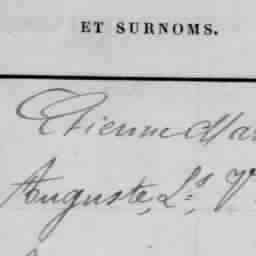 ET SURNOMS.
Etienne Mar
Auguste, Ls, V